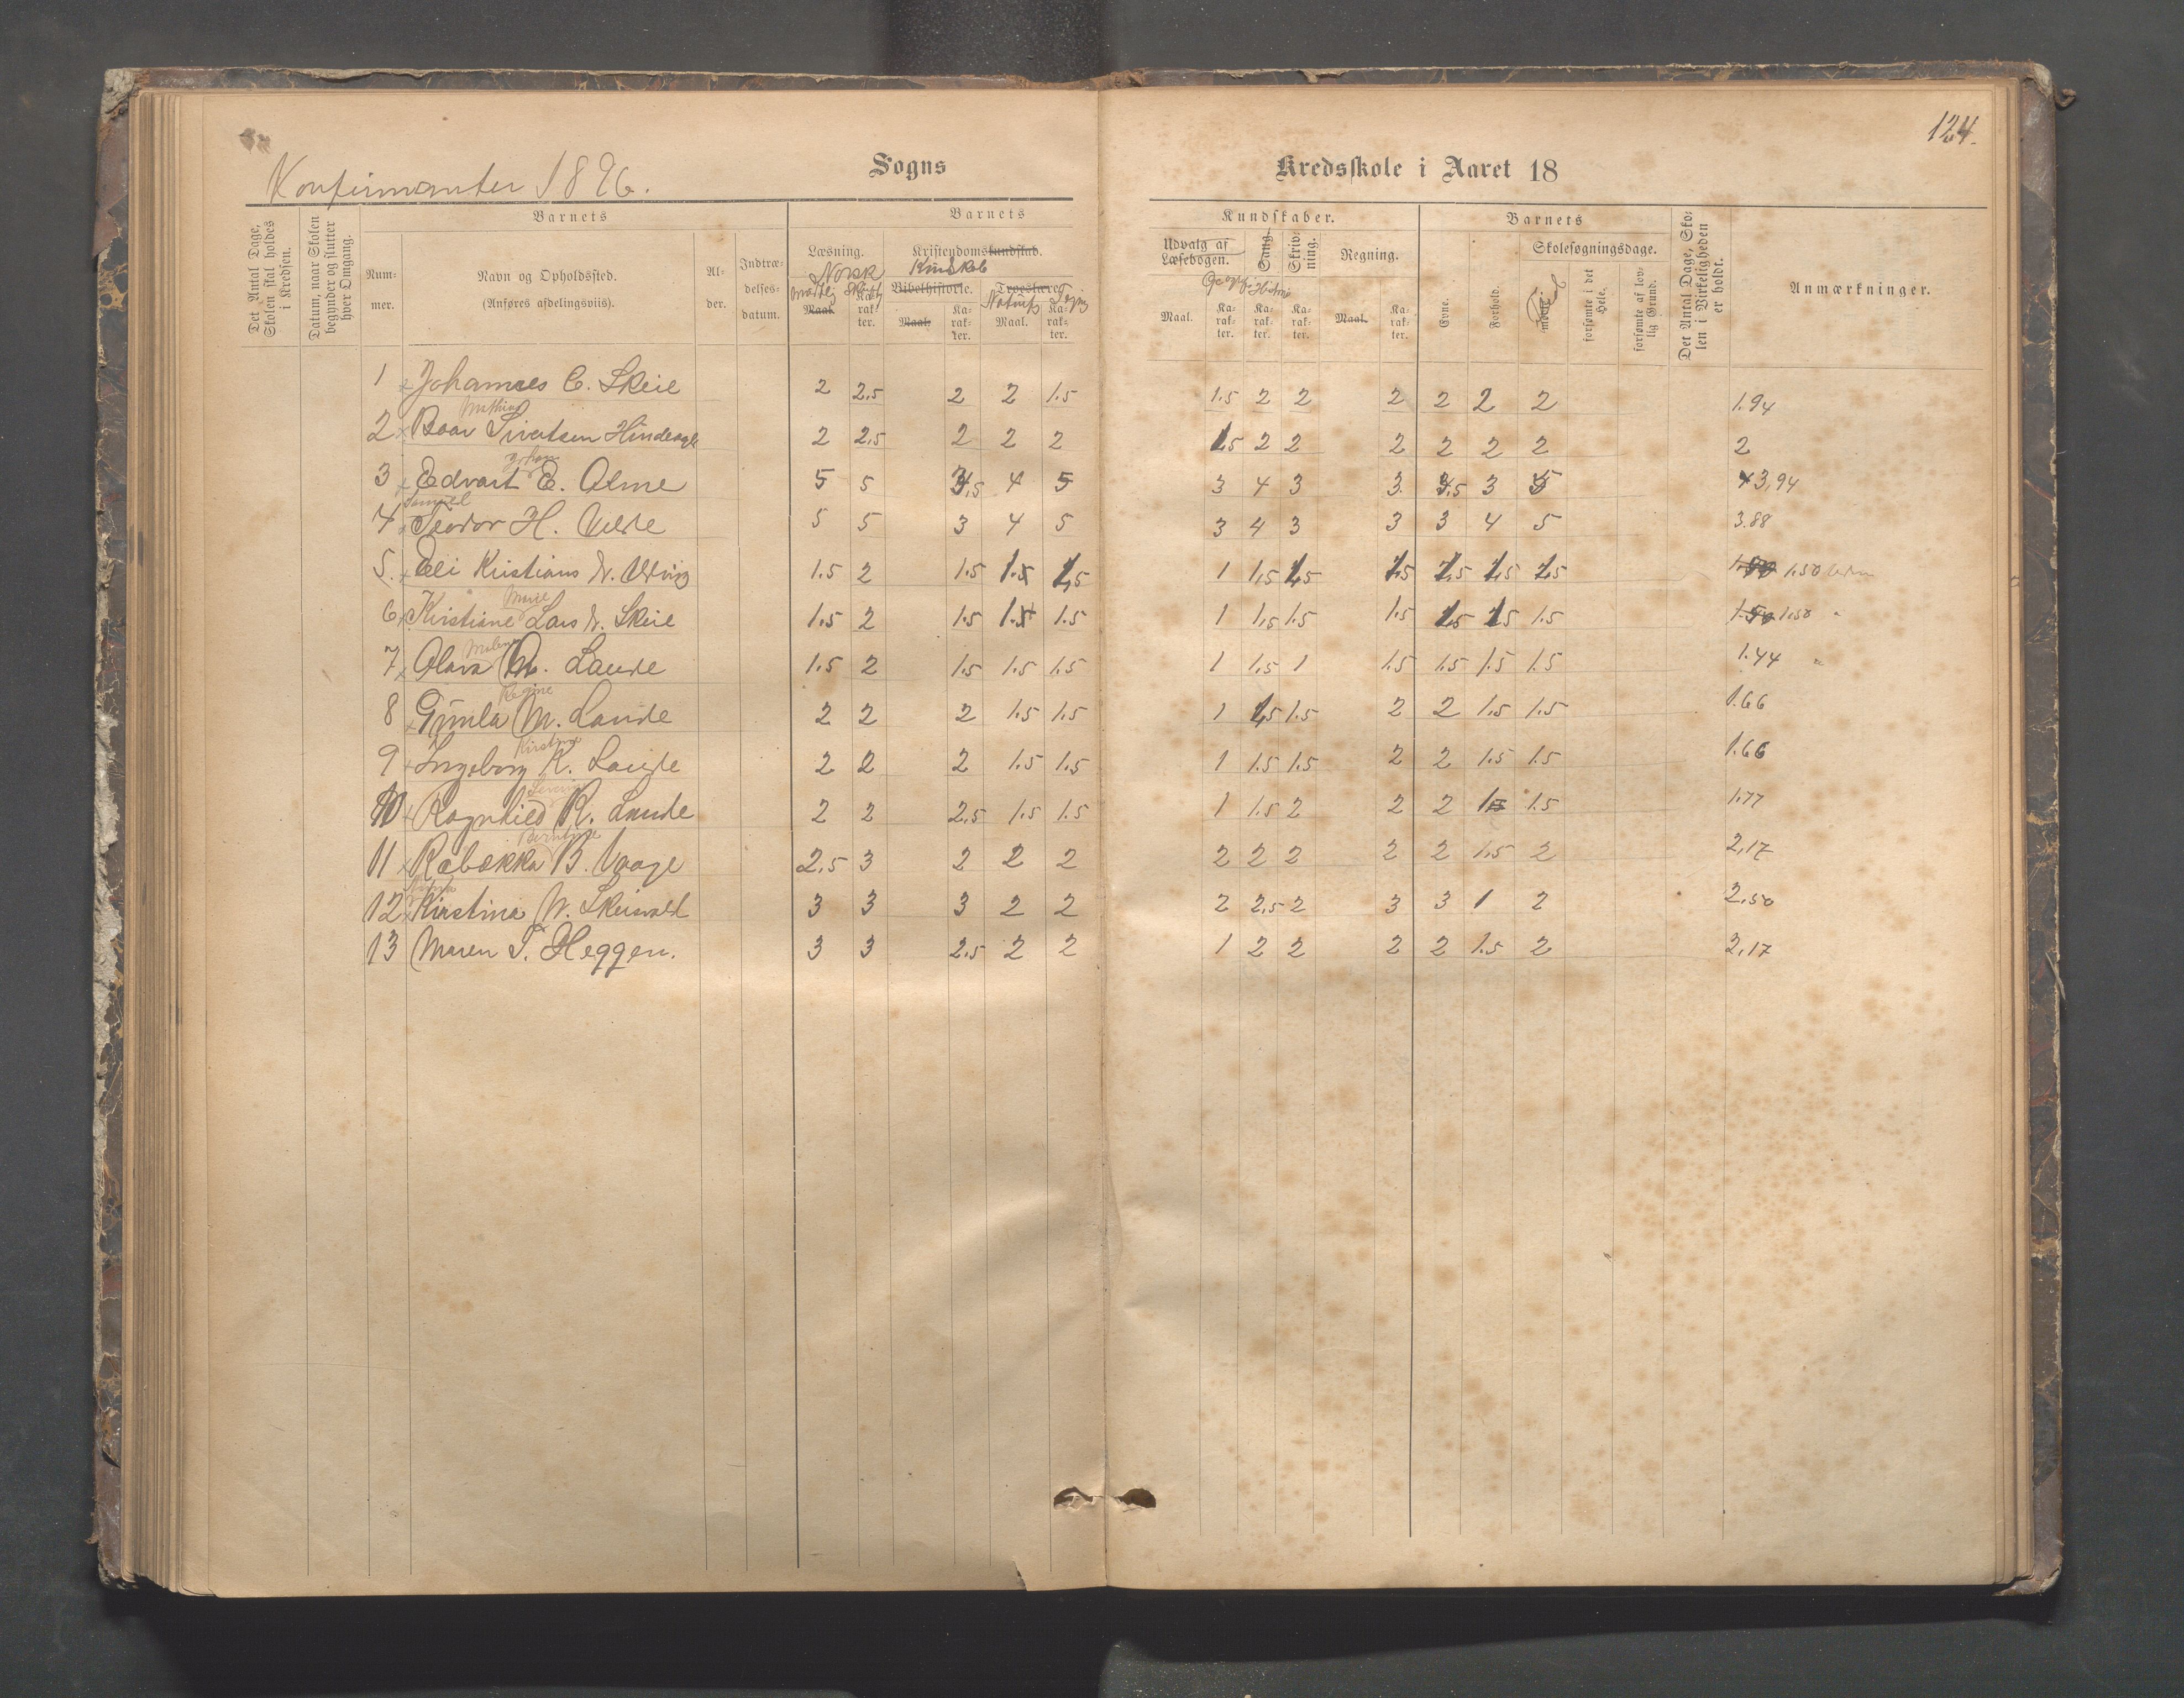 124.
Konfirmanter 1896.
Sogns Kredsskole i Aaret 18
Det Antal Dage, Skolen skal holdes i Kredsen.
Datum, naar Skolen begynder og slutter hver Omgang.
Barnets
Nummer.
Navn og Opholdssted.
(Anføres afdelingsviis).
Alder.
Indtrædelsesdatum.
Barnets
Læsning.
Norsk
Maal.
Karakter.
Kristendomskundskab.
Kundskab
Bibelhistorie.
Maal.
Karakter.
Troeslære.
Maal.
Karakter.
Kundskaber.
Udvalg af Læsebogen.
Maal.
Karakter.
Sang.
Historie
Karakter.
Skrivning.
Karakter.
Regning.
Maal.
Karakter.
Barnets
Evne.
Forhold.
Skolesøgningsdage.
mødte.
forsømte i det Hele.
forsømte af lovlig Grund.
Det Antal Dage, Skolen i Virkeligheden er holdt.
Anmærkninger.
1 x Johannes C. Skeie 2 2,5 2 2 1.5 1.5 2 2 2 2 2 2 1.94
Mathias
2 x Baar Sivertsen 2 2,5 2 2 2 1.5 2 2 2 2 2 2 2
Johan
3 x Edvart E. Olme 5 5 3,5 4 5 3 4 3 3 3,5 3 5 3,94
Samuel
4 x Teodor H. Velde 5 5 3 4 5 3 4 3 3 3 4 5 3.88
5. x Eli Kristians d. 1.5 2 1.5 1.5 1,5 1 1,5 1,5 1,5 1,5 1,5 1,5 1.50
Marie
6 x Kirstiane Lars d. Skeie 1.5 2 1.5 1.5 1.5 1 1,5 1.5 1.5 1,5 1.5 1.5 1.50
Malene
7 x Olava M. Lande 1.5 2 1.5 1.5 1.5 1 1.5 1 1.5 1.5 1.5 1.5 1.44 "
Regine
8 x Gunla M. Lande 2 2 2 1.5 1.5 1 1,5 1.5 2 2 1.5 1.5 1.66
Kirstine
9 x Ingeborg K. Lande 2 2 2 1.5 1.5 1 1.5 1.5 2 2 1.5 1.5 1.66
10 x Ragnhild R. Lande 2 2 2.5 1.5 1.5 1 1.5 2 2 2 1.5 1.5 1.77
Berntine
11 x Rabekka B. Vaage 2,5 3 2 2 2 2 2 2 2 2 1.5 2 2,17
Anna
12 x Kirstina N. Skeisvold 3 3 3 2 2 2 2,5 2 3 3 1 2 2,50
13 Maren T. Heggen. 3 3 2.5 2 2 1 2 2 2 2 1.5 2 2,17